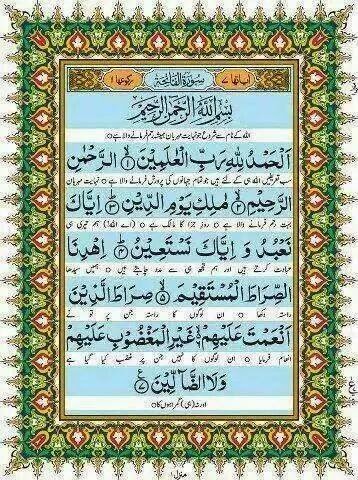 اٰیاتها ٧ سُوْرَةُ الْفَاتِحَةِ رکوعها ١
بِسْمِ اللّٰهِ الرَّحْمٰنِ الرَّحِیْمِ
اللہ کے نام سے شروع جو نہایت مہربان ہمیشہ رحم فرمانے والا ہے ۝
اَلْحَمْدُ لِلّٰهِ رَبِّ الْعٰلَمِیْنَ ۝١ الرَّحْمٰنِ
سب تعریفیں اللہ ہی کے لئے ہیں جو تمام جہانوں کی پرورش فرمانے والا ہے ۝ نہایت مہربان
الرَّحِیْمِ ۝٢ مٰلِكِ یَوْمِ الدِّیْنِ ۝٣ اِیَّاكَ
بہت رحم فرمانے والا ہے ۝ روز جزا کا مالک ہے ۝ (اے اللہ!) ہم تیری ہی
نَعْبُدُ وَ اِیَّاكَ نَسْتَعِیْنُ ۝٤ اِهْدِنَا
عبادت کرتے ہیں اور ہم تجھ ہی سے مدد چاہتے ہیں ۝ ہمیں سیدھا
الصِّرَاطَ الْمُسْتَقِیْمَ ۝٥ صِرَاطَ الَّذِیْنَ
راستہ دکھا ۝ ان لوگوں کا راستہ جن پر تو نے
اَنْعَمْتَ عَلَیْهِمْ ۝٦ غَیْرِ الْمَغْضُوْبِ عَلَیْهِمْ
انعام فرمایا ۝ ان لوگوں کا نہیں جن پر غضب کیا گیا ہے
وَلَا الضَّآلِّیْنَ ۝٧
اور نہ (ہی) گمراہوں کا ۝
منزل ١